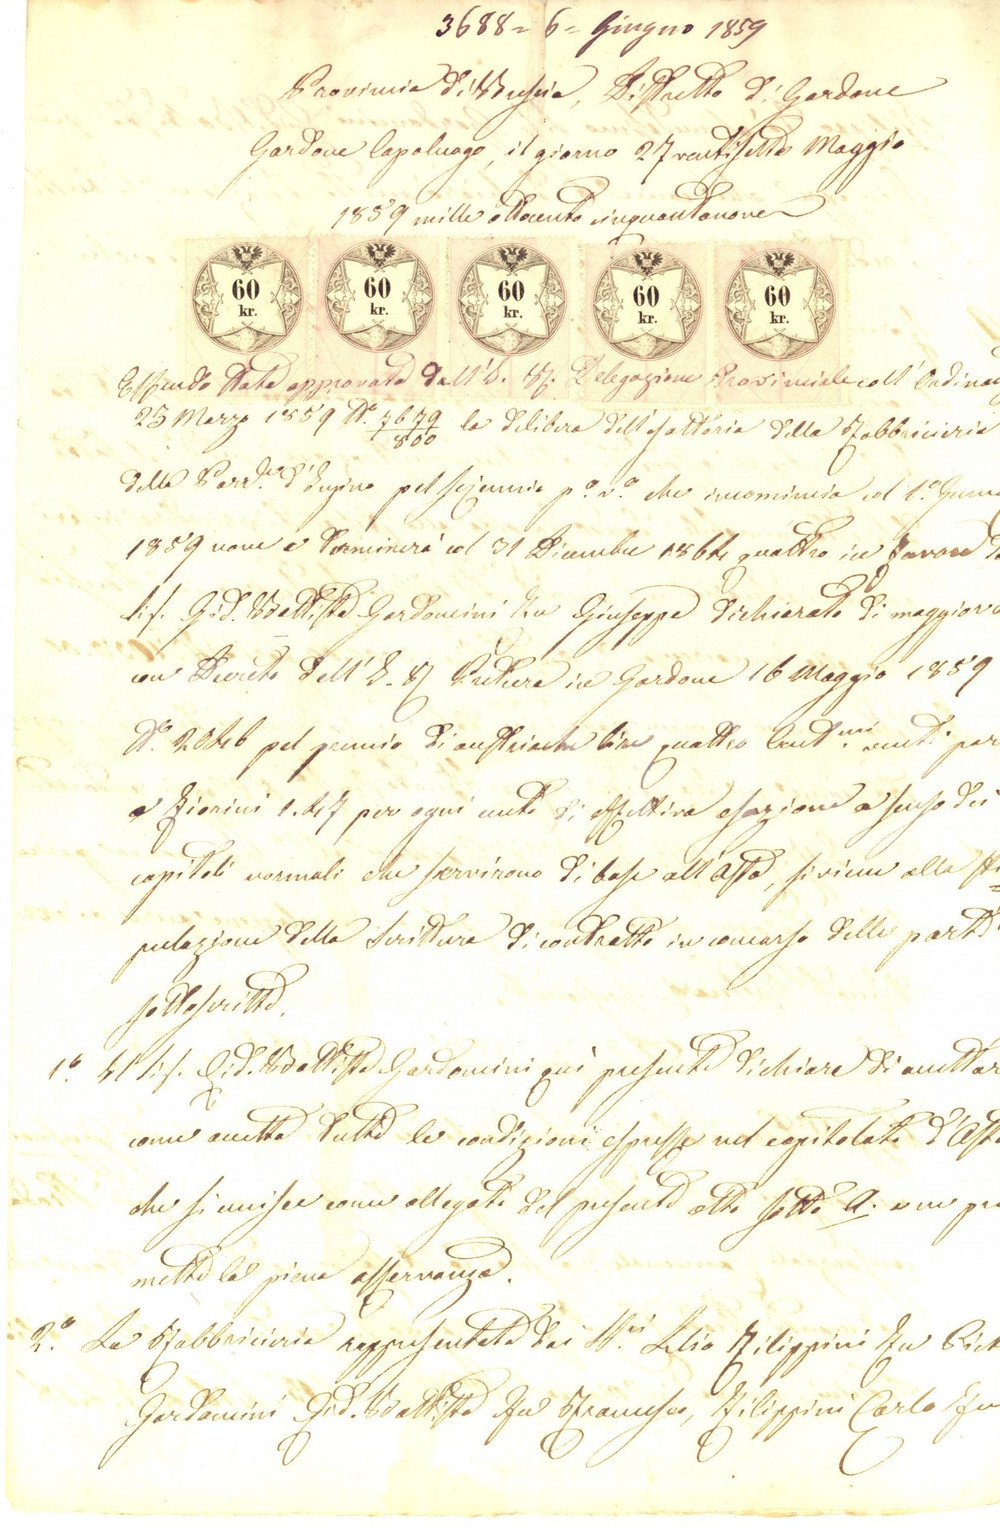 3688 = 6 = Giugno 1859
Provincia di Brescia, Distretto di Gardone
Gardone Capoluogo, il giorno 27 ventisette Maggio
1859 mille ottocento cinquantanove
60 kr. 60 kr. 60 kr. 60 kr. 60 kr.
Essendo stata approvata dall'I. R. Delegazione Provinciale coll'Ordinan
23 Marzo 1859 N.° 7679/800 la delibera dell'esattoria della Fabbriceria
della d'Inzino pel sejennio p.° v.° che incomincia col 1.° Genna
1859 nove e terminerà col 31 Dicembre 1864 quattro in favore de
Sig. Gio. Battista Gardoncini fu Giuseppe dichiarato di maggior
con Decreto dell'I. R. Pretura in Gardone 16 Maggio 1859
N.° pel premio di austriache lire quattro Cent.mi venti par
a Fiorini 1.47 per ogni cento di effettiva esazione a senso dei
capitoli normali che servirono di base all'Asta, si viene alla sti=
pulazione della Scrittura di contratto in concorso delle parti
sottoscritte.
1.° Il Sig. Gio. Battista Gardoncini qui presente dichiara di accettar
come accetta tutte le condizioni espresse nel capitolato d'Asta
che si unisce come allegato del presente atto sotto A. e ne pro
mette la piena osservanza.
2.° La Fabbriceria rappresentata dai SS.ri Lelio Filippini fu Piet
Gardoncini Gio. Battista fu Francesco, Filippini Carlo fu